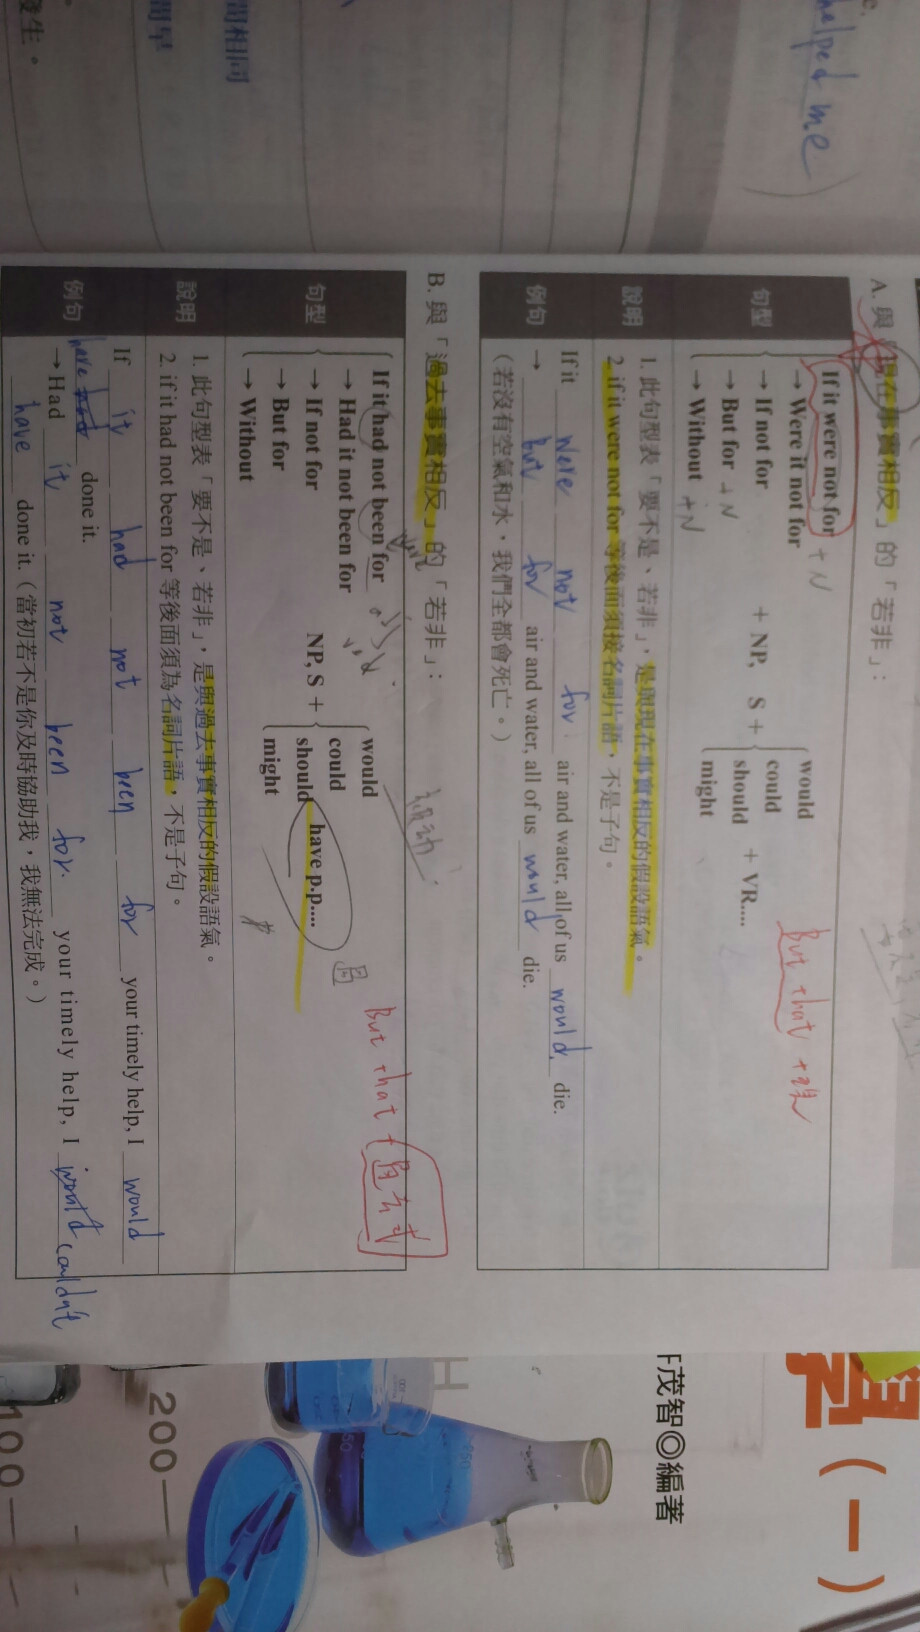 helped me)
間相同
間早
發生。
A. 與「現在事實相反」的「若非」：
句型
If it were not for + N
→ Were it not for
→ If not for
→ But for + N
→ Without + N
+ NP, S +
would
could
should
might
+ VR....
But that + 現
說明
1. 此句型表「要不是、若非」，是與現在事實相反的假設語氣。
2. if it were not for 等後面須接名詞片語，不是子句。
例句
If it were not for air and water, all of us would die.
→ but for air and water, all of us would die.
（若沒有空氣和水，我們全都會死亡。）
B. 與「過去事實相反」的「若非」：
句型
If it had not been for
→ Had it not been for
→ If not for
→ But for
→ Without
NP, S +
would
could
should
might
have p.p....
But that + 過去式
說明
1. 此句型表「要不是、若非」，是與過去事實相反的假設語氣。
2. if it had not been for 等後面須為名詞片語，不是子句。
例句
If it had not been for your timely help, I would
have done it.
→ Had it not been for. your timely help, I would couldn't
have done it.（當初若不是你及時協助我，我無法完成。）
學（一）
茂智◎編著
H
200
100